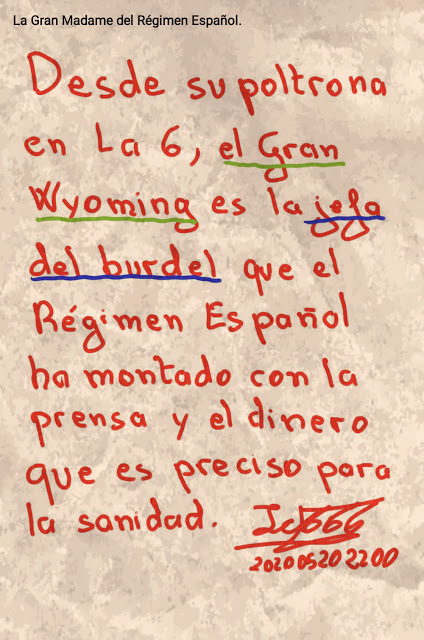 La Gran Madame del Régimen Español.
Desde su poltrona
en La 6, el Gran
Wyoming es la jefa
del burdel que el
Régimen Español
ha montado con la
prensa y el dinero
que es preciso para
la sanidad.
20200520 2200